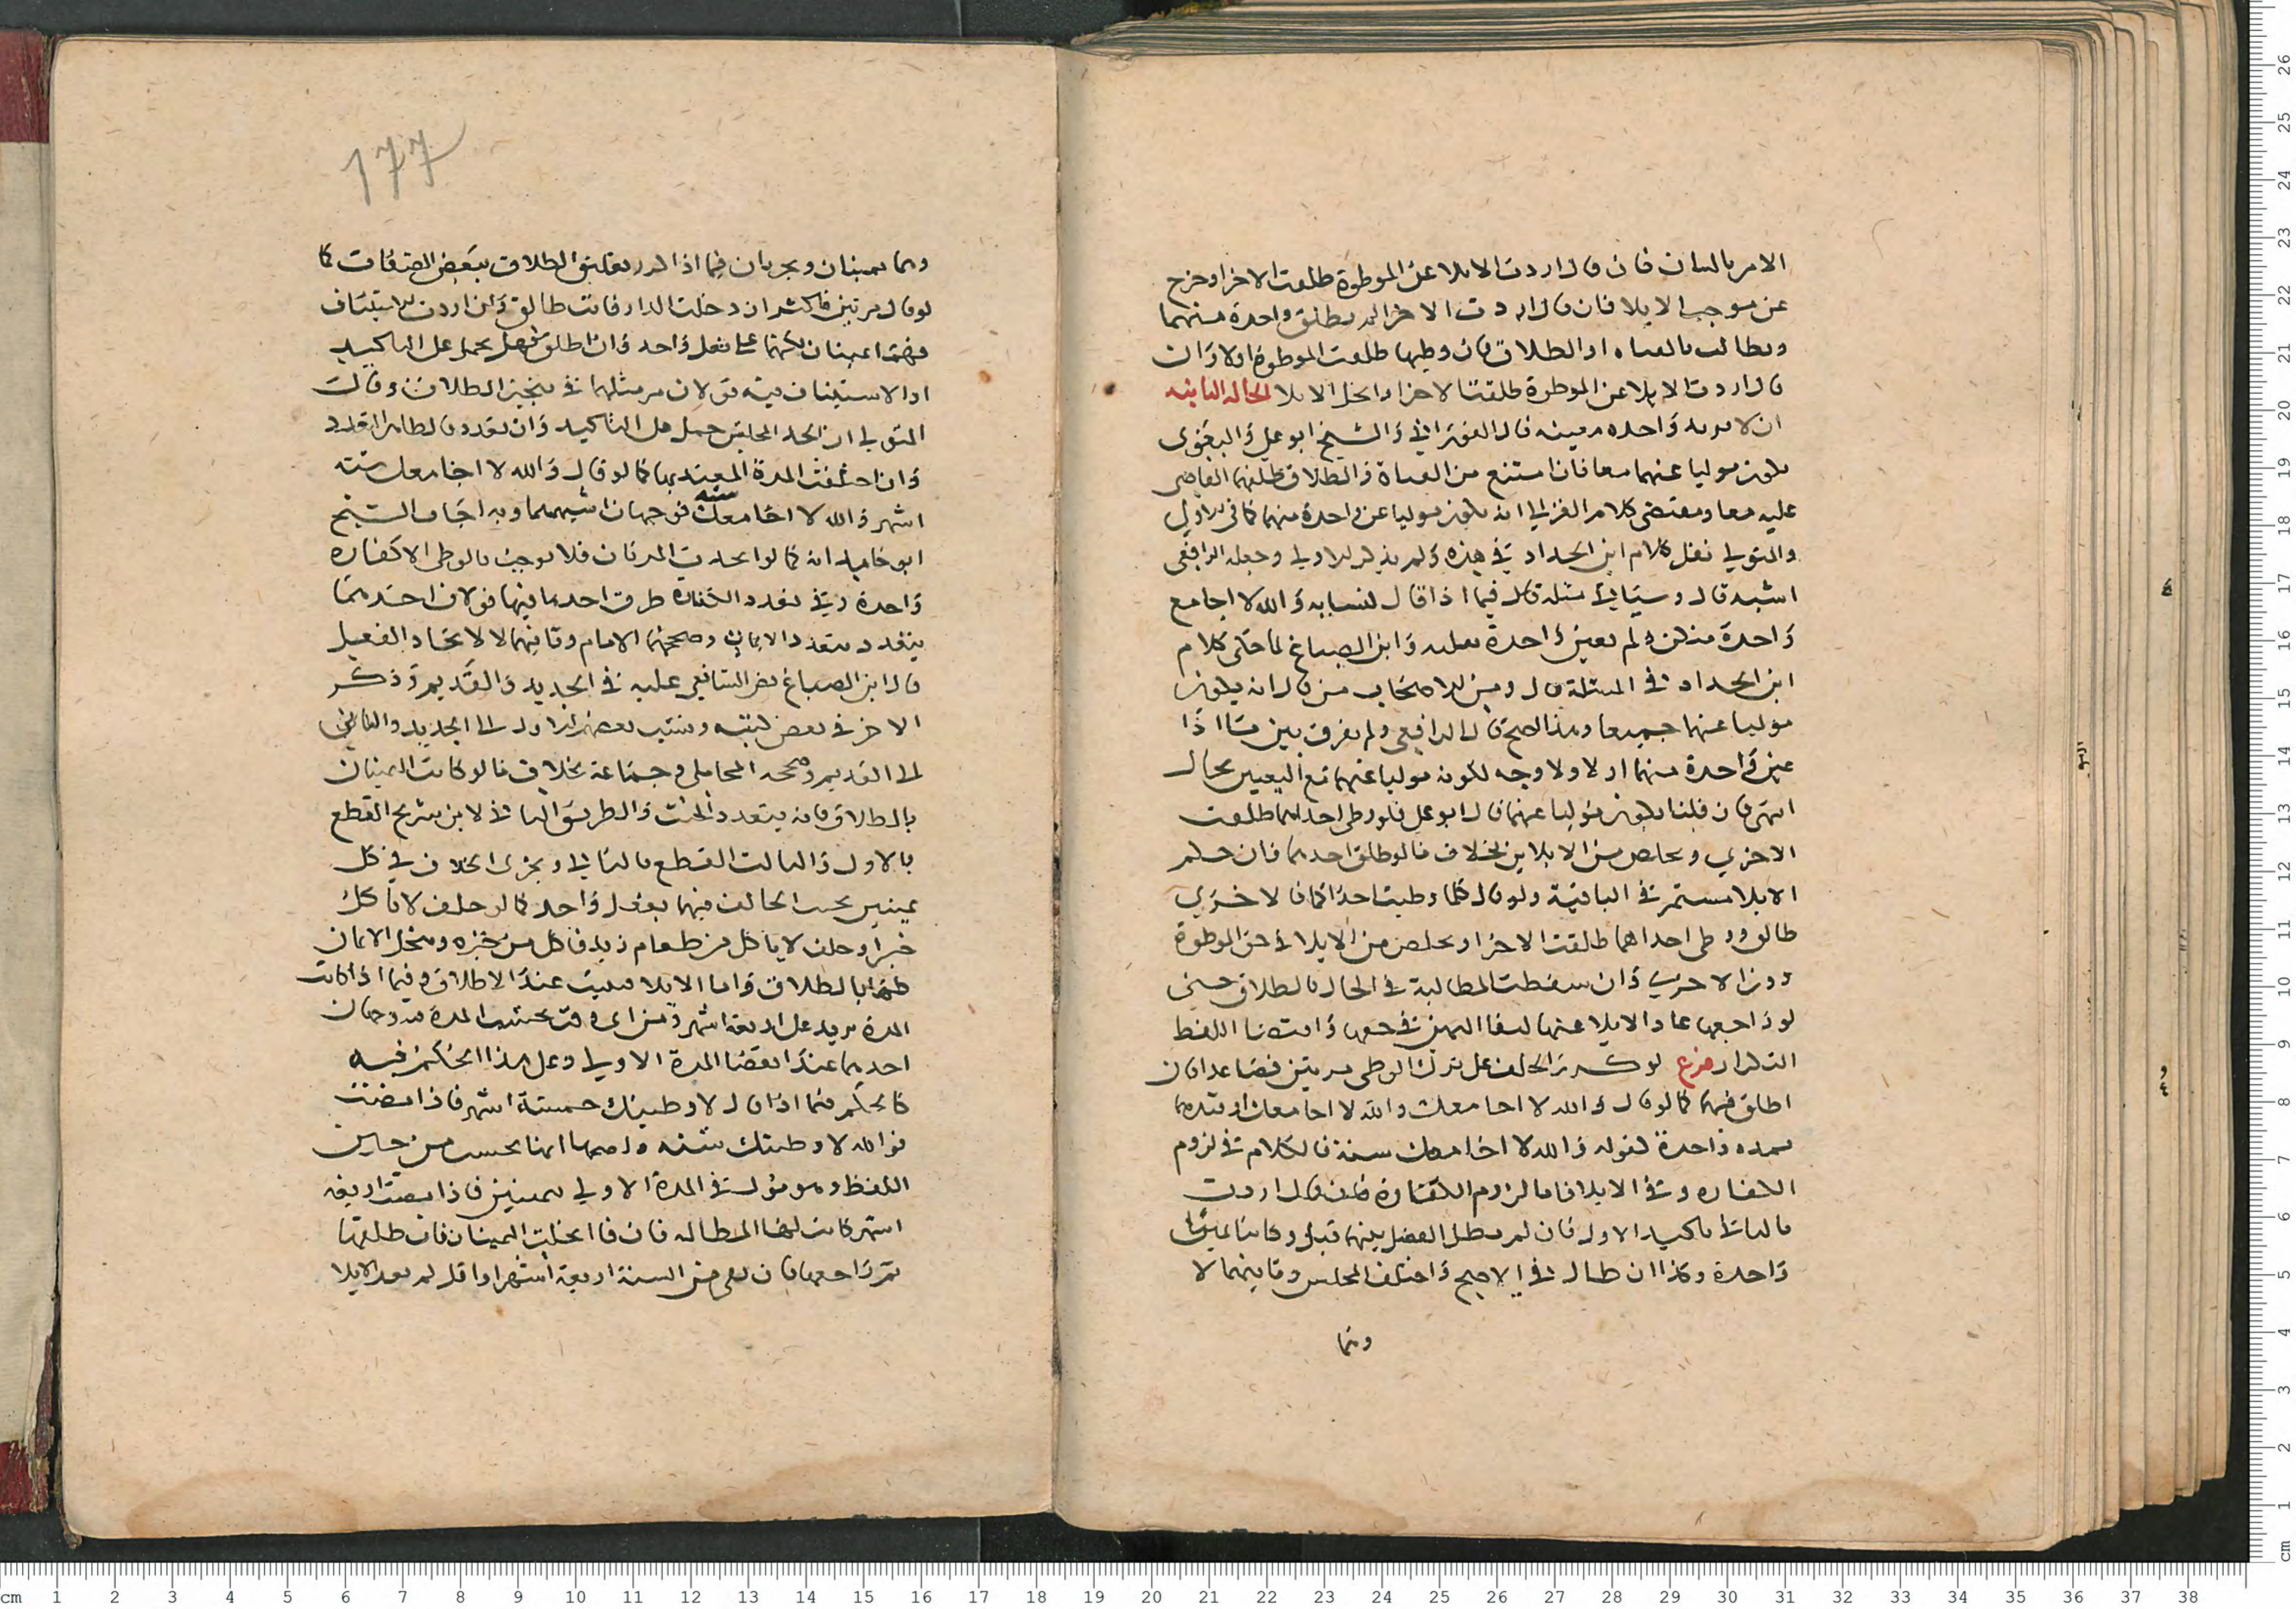 الامر بالبيان فان قال اردت الايلا عن الموطوة طلقت الاخرا وخرج
عن موجب الايلا فان قال اردت الاخرا لم يطلق واحدة منهما
ويطالب بالفياه او الطلاق فان وطيها طلقت الموطوة اولا وان
قال اردت الايلا عن الموطوة طلقت الاخرا وانحل الايلا الحالة الثانيه
ان لا يريد واحده معينه قال الفوراني والشيخ ابو علي والبغوي
يكون موليا عنهما معا فان امتنع من الفياة والطلاق طلقهما القاضي
عليه معا ومقتضى كلام الغزالي انه يكون موليا عن واحدة منهما كما في الاولي
والمتولي نقل كلام ابن الحداد في هذه ولم يذكر الاولي وجعله الرافعي
اشبه قال وسياتي مثله قال فيما اذا قال لنسايه والله لا اجامع
واحدة منكن ولم يعين واحدة بقلبه وابن الصباغ لما حكى كلام
ابن الحداد في المسئلة قال ومن الاصحاب من قال انه يكون
موليا عنهما جميعا وهذا اصح قال الرافعي ولم يفرق بين ما اذا
عين واحدة منهما او لا ولا وجه لكونه موليا عنهما مع التعيين بحال
انتهى فان قلنا يكون موليا عنهما قال ابو علي فلو وطى احداهما طلقت
الاخري وتخلص من الايلاين بخلاف ما لو طلق احدهما فان حكم
الايلا مستمر في الباقية ولو قال كلما وطيت احداكما فالاخري
طالق ووطى احداهما طلقت الاخرا وتخلص من الايلا في حق الموطوة
دون الاخري وان سقطت المطالبة في الحال بالطلاق حتى
لو راجعها عاد الايلا عنها لبقا اليمين في حقها واقتضا اللفظ
التكرار فرع لو كرر الحلف على ترك الوطى مرتين فصاعدا فان
اطلق فيهما كما لو قال والله لا اجامعك والله لا اجامعك او قيدهما
بمده واحدة لقوله والله لا اجامعك سنة فالكلام في لزوم
الكفاره وفي الايلا فاما لزوم الكفارة فان قال اردت
بالثاني تاكيد الاول فان لم يطل الفصل بينهما قبل وكانتا يمينا
واحدة وكذا ان طال في الاصح واختلف المجلس وثانيهما لا
وهما
177
وهما يمينان ويجريان فيما اذا كرر تعليق الطلاق ببعض الصفات كما
لو قال مرتين فاكثر ان دخلت الدار فانت طالق وان اردت الاستيناف
فهما يمينان لكنهما على فعل واحد وان اطلق فهل يحمل على التاكيد
او الاستيناف فيه قولان مر مثلهما في تنجيز الطلاق وقال
المتولي ان اتحد المجلس حمل على التاكيد وان تعدد فالظاهر التعدد
وان اختلفت المدة المقيد بها كما لو قال والله لا اجامعك سته
اشهر والله لا اجامعك سنه فوجهان اشبههما وبه اجاب الشيخ
ابو حامد انه كما لو اتحدت المدتان فلا يوجب بالوطى الا كفاره
واحدة وفي تعدد الكفاره طرق احدها فيها قولان احدهما
يتعدد بتعدد الايمان وصححهما الامام وثانيهما لا لاتحاد الفعل
قال ابن الصباغ نص الشافعي عليه في الجديد والقديم وذكر
الاخر في بعض كتبه ونسب بعضهم الاول الى الجديد والثاني
الى القديم وصححه المحاملي وجماعة بخلاف ما لو كانت اليمينان
بالطلاق فانه يتعدد الحنث والطريق الثاني لابن سريج القطع
بالاول والثالث القطع بالثاني ويجرى الخلاف في كل
يمينين يحنث الحالف فيهما بفعل واحد كما لو حلف لا ياكل
خبزا وحلف لا ياكل من طعام زيد فاكل من خبزه وينحل الايمان
بالطلاق واما الايلا فيثبت عند الاطلاق وفيما اذا كانت
المدة يزيد على اربعة اشهر ومن اي وقت يحتسب المدة فيه وجهان
احدهما عند انقضا المدة الاولي وعلى هذا الحكم فيه
كالحكم فيما اذا قال لا وطيتك خمسة اشهر فاذا مضت
فوالله لا وطيتك سنه واصحهما انها يحسب من حين
اللفظ وهو مول في المدة الاولي بيمينين فاذا مضت اربعه
اشهر كانت لها المطالبه فان فا انحلت اليمينان فان طلقها
ثم راجعها فان بقي من السنة اربعة اشهر او اقل لم يعد الايلا